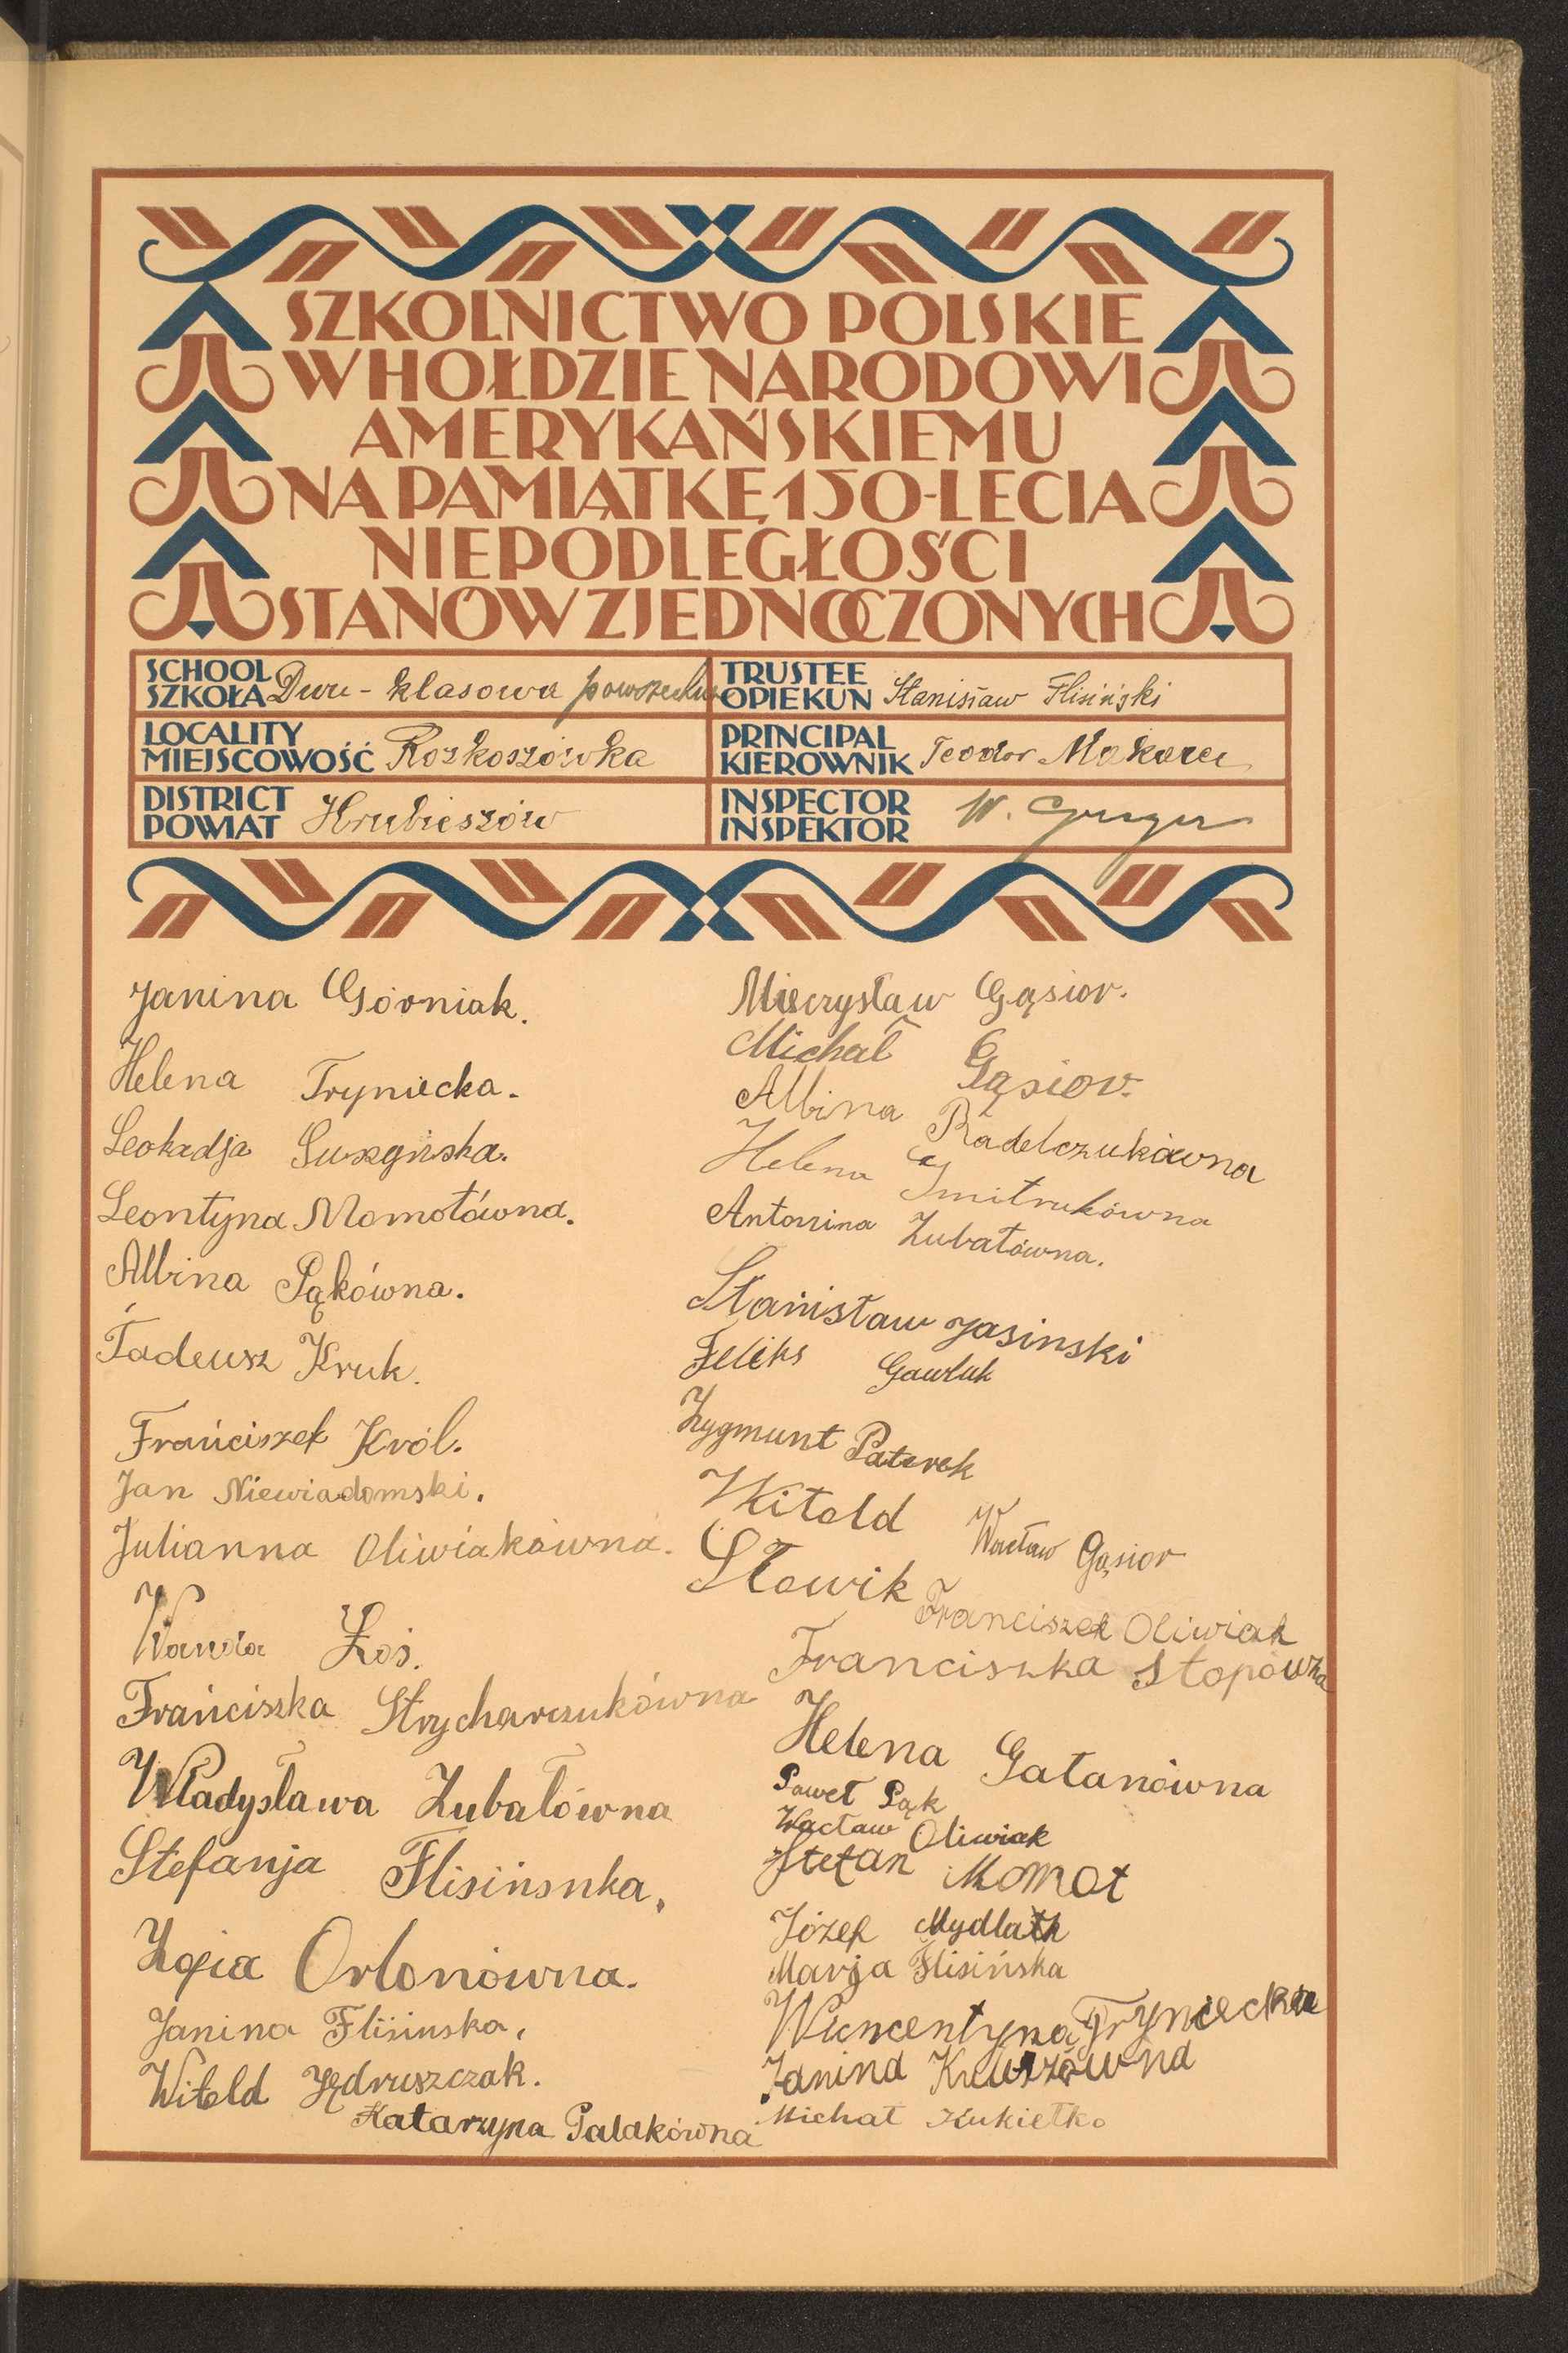 SZKOLNICTWO POLSKIE
W HOŁDZIE NARODOWI
AMERYKAŃSKIEMU
NA PAMIĄTKĘ 150-LECIA
NIEPODLEGŁOŚCI
STANÓW ZJEDNOCZONYCH
SCHOOL
SZKOŁA Dwu-klasowa powszechna
TRUSTEE
OPIEKUN Stanisław Flisiński
LOCALITY
MIEJSCOWOŚĆ Rozkoszówka
PRINCIPAL
KIEROWNIK Teodor Makara
DISTRICT
POWIAT Hrubieszów
INSPECTOR
INSPEKTOR W.
Janina Górniak.
Helena Tryniecka.
Leokadja
Leontyna Momotówna.
Albina Pąkówna.
Tadeusz Kruk.
Frańciszek Król.
Jan Niewiadomski.
Julianna Oliwiakówna.
Wanda Łoś.
Frańciszka Strycharczukówna
Władysława Zubałówna
Stefanja Flisińsnka,
Zofia Orłonówna.
Janina Flisinska,
Witold Jędruszczak.
Katarzyna Palakówna
Mieczysław Gąsior.
Michał Gąsior.
Albina Radelczukówna
Helena Smitrukówna
Antonina Zubatówna.
Stanisław Jasinski
Feliks Gawluk
Zygmunt Paterek
Witold
Słowik
Wacław Gąsior
Franciszek Oliwiak
Franciszka Stopówna
Helena Gałanówna
Paweł Pąk
Wacław Oliwiak
Stefan Momot
Józef Mydlak
Marja Flisińska
Wicncentyna Tryniecka
Janina
Michał Kukiełko